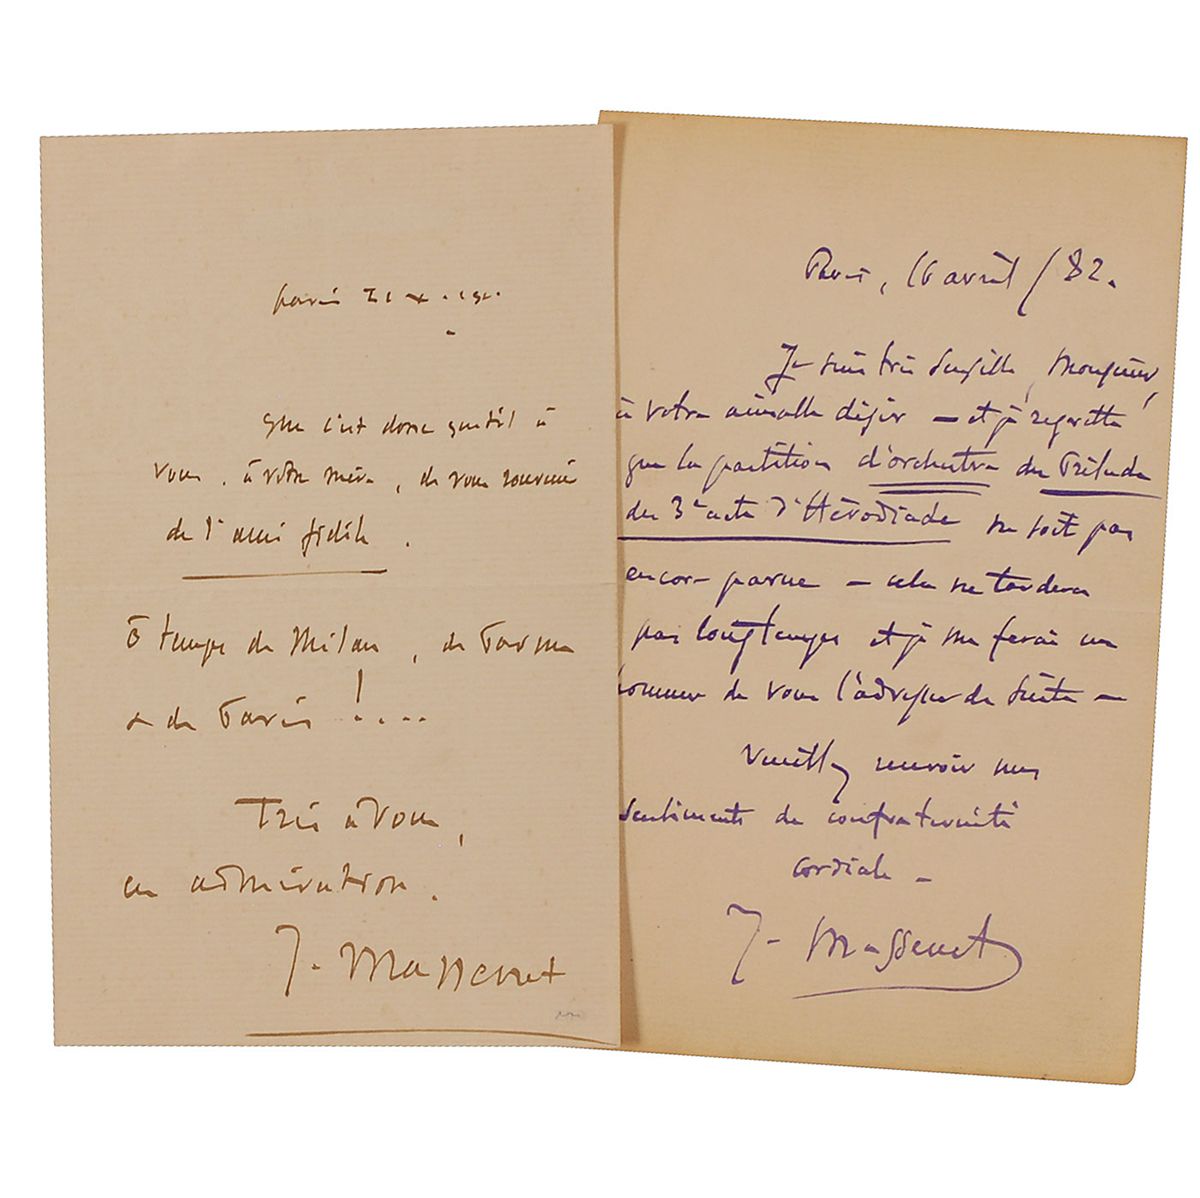 paris
que c'est donc gentil à
vous, à votre mère, de vous souvenir
de l'ami fidèle.
temps de Milan, de Parme
& de Paris !....
Très à vous,
en admiration.
J. Massenet
Paris, 16 avril /82.
Je suis très sensible, Monsieur,
à votre aimable désir — et je regrette
que la partition d'orchestre du Prélude
du 3e acte d'Hérodiade ne soit pas
encor parue — cela ne tardera
pas longtemps et je me ferai un
honneur de vous l'adresser de suite —
Veuillez recevoir mes
sentiments de confraternité
cordiale —
J. Massenet